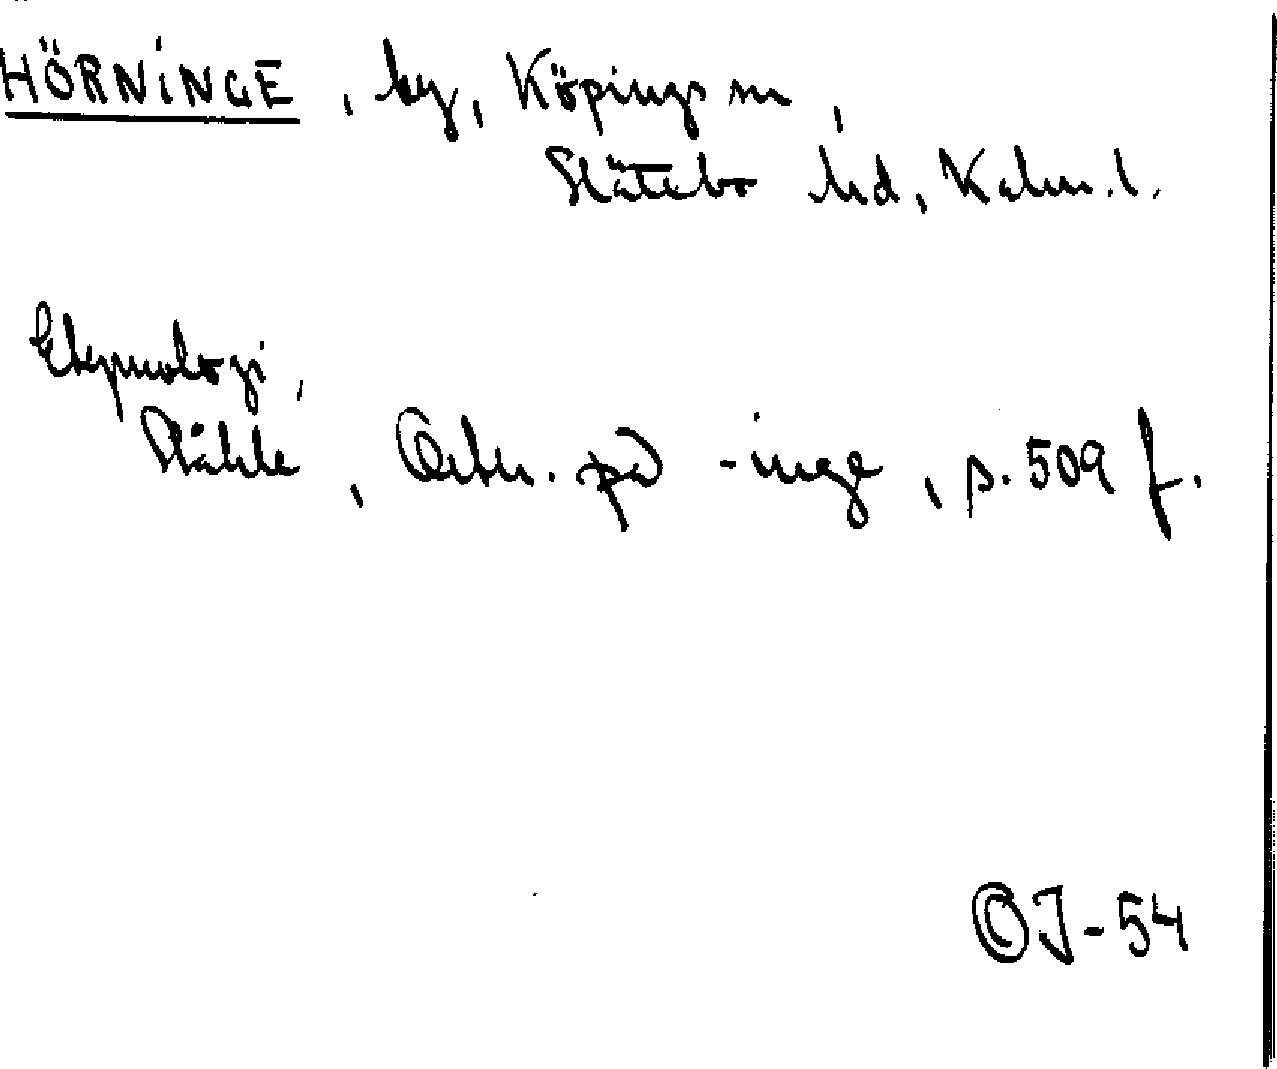 HÖRNINGE, by, Köpings sn,
Slättbo hd, Kalm. l.
Etymologi,
Ståhle, Ortn. på -inge, s. 509 f.
©J-54